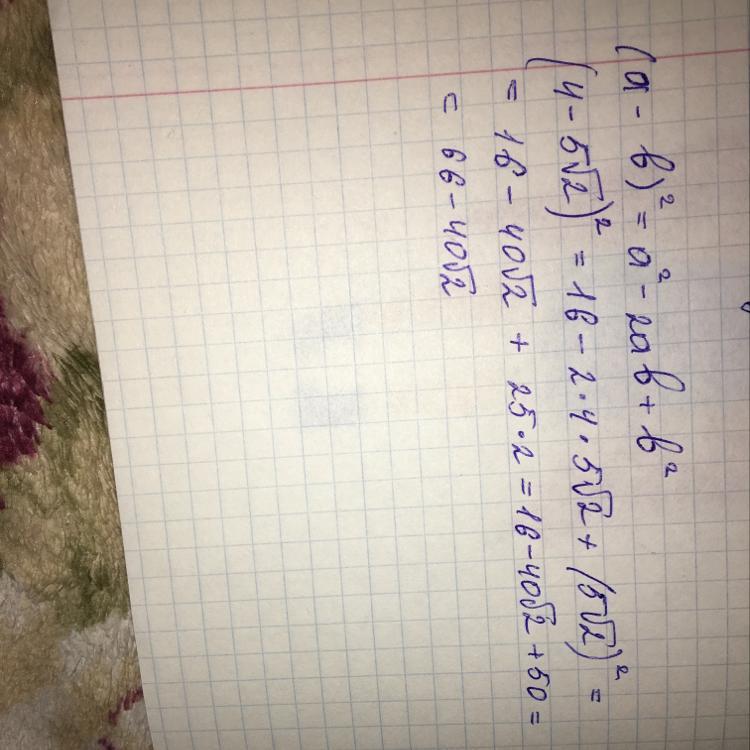 (a - b)² = a² - 2ab + b²
(4 - 5√2)² = 16 - 2·4·5√2 + (5√2)² =
= 16 - 40√2 + 25·2 = 16 - 40√2 + 50 =
= 66 - 40√2